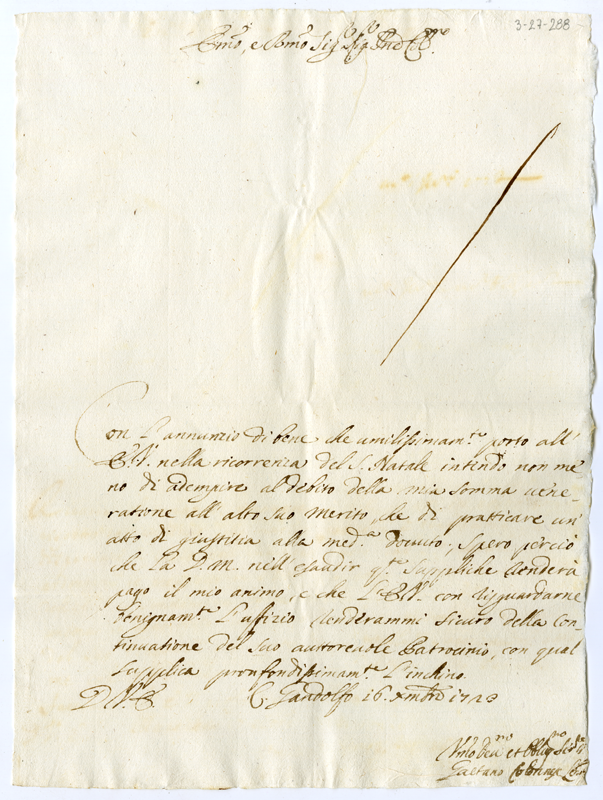 3-27-288
Emo, e Rmo Sig.r Sig.r Pne C
Con l'annunzio di bene che umilissimam.te porto all'
E.V. nella ricorrenza del S. Natale intendo non me
no di adempire al debito della mia somma vene-
ratione all' alto suo merito, che di pratticare un'
atto di giustitia alla med.a dovuto, spero perciò
che la D.M. nell'esaudir q.te suppliche renderà
pago il mio animo, e che l'E.V. con risguardarne
benignam.te l'uffizio renderammi sicuro della con-
tinuatione del suo auttorevole Patrocinio, con qual
supplica pronfondissimam.te l'inchino.
D.V.E. C. Gandolfo 16 Xmbre 1723
Umo dev.mo et Obblig.mo
Gaetano